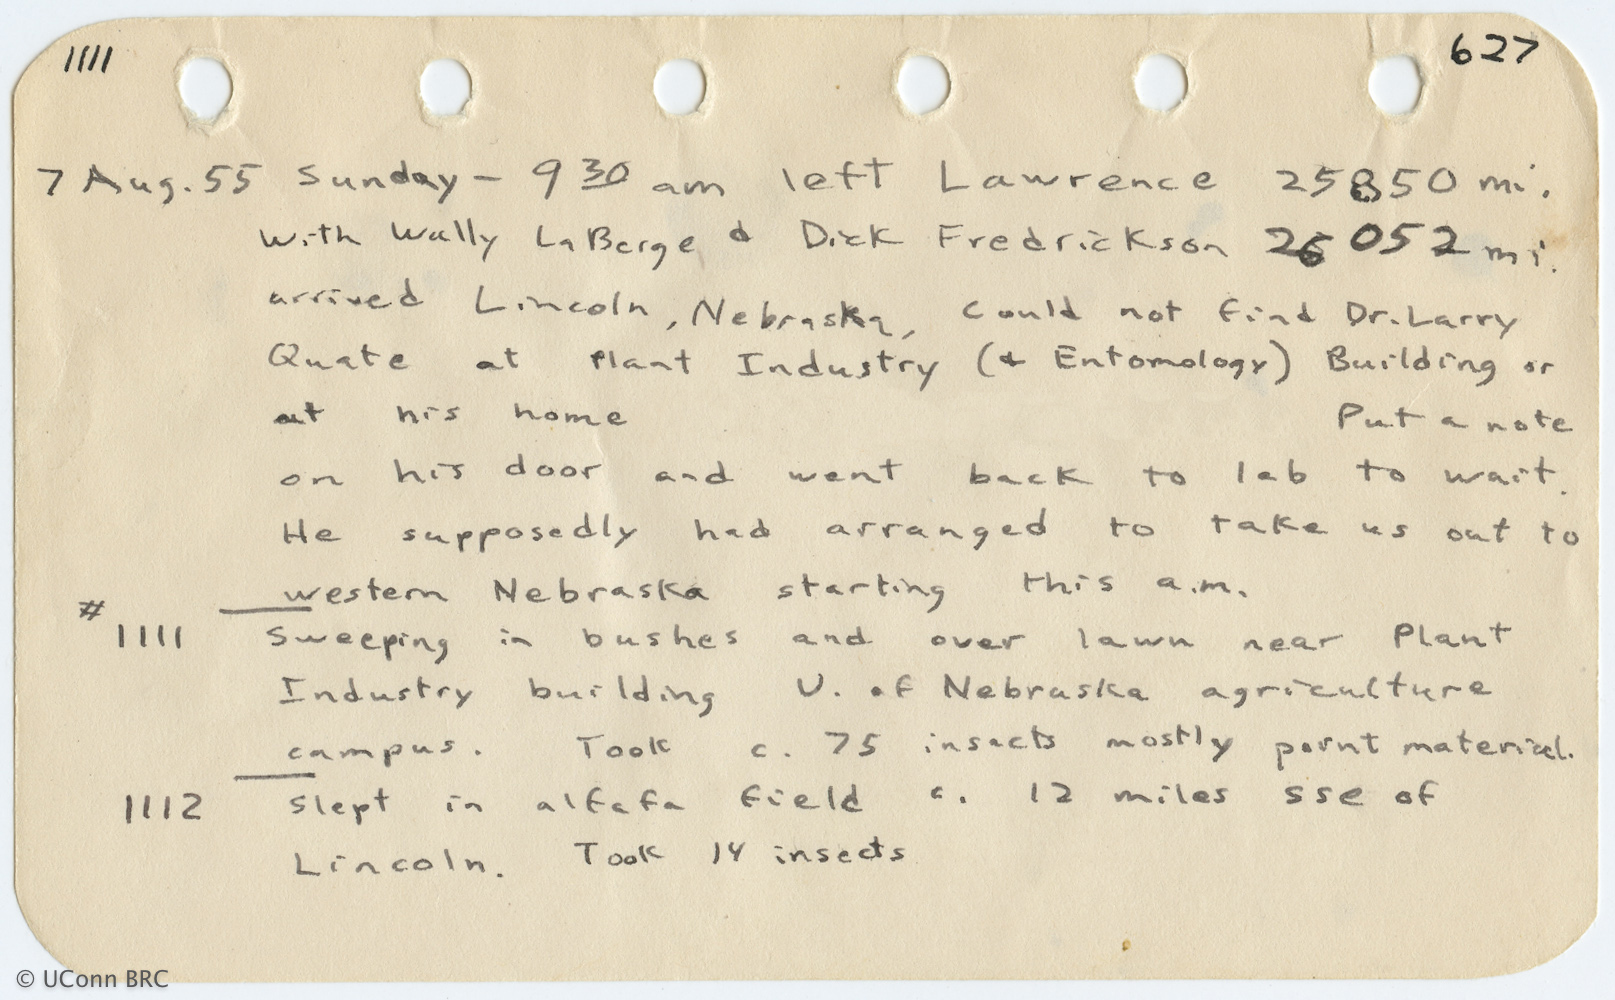 1111 627
7 Aug. 55 Sunday - 9 30 am left Lawrence 25850 mi.
with Wally LaBerge & Dick Fredrickson 26 052 mi.
arrived Lincoln, Nebraska, Could not find Dr. Larry
Quate at Plant Industry (& Entomology) Building or
at his home Put a note
on his door and went back to lab to wait.
He supposedly had arranged to take us out to
western Nebraska starting this a.m.
#
1111 Sweeping in bushes and over lawn near Plant
Industry building U. of Nebraska agriculture
campus. Took c. 75 insects mostly point material.
1112 Slept in alfafa field c. 12 miles sse of
Lincoln. Took 14 insects
© UConn BRC